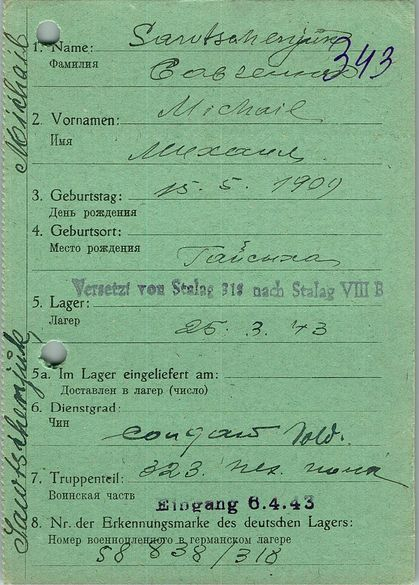 1. Name: Sawtschenjuk
Фамилия
343
2. Vornamen: Michail
Имя
Михаил
3. Geburtstag: 15. 5. 1909
День рождения
4. Geburtsort:
Место рождения
Versetzt von Stalag 318 nach Stalag VIII B
5. Lager:
Лагер
25. 3. 43
5a. Im Lager eingeliefert am:
Доставлен в лагер (число)
6. Dienstgrad:
Чин
Sold.
7. Truppenteil: 323.
Воинская часть
Eingang 6.4.43
8. Nr. der Erkennungsmarke des deutschen Lagers:
Номер военнопленного в германском лагере
58 838/318
Sawtschenjuk Michail